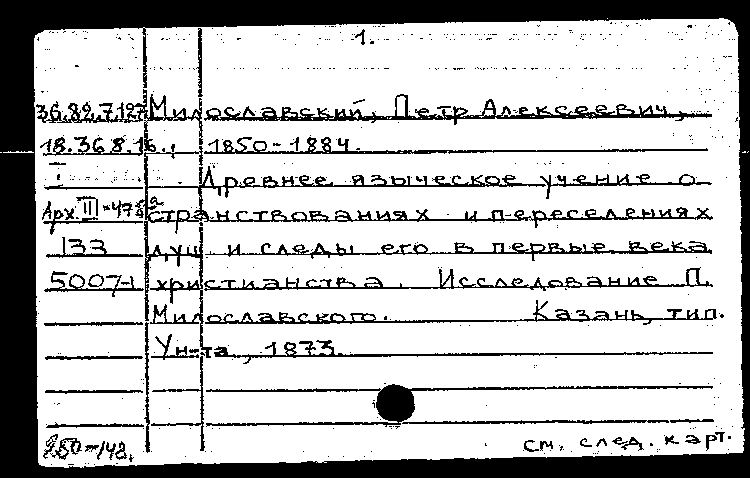 1.
36.82.7.127 Милославский, Петр Алексеевич,
18.36.8.16.; 1850-1884.
I Древнее языческое учение о
Арх. III странствованиях и переселениях
133 душ и следы его в первые века
5007-1 христианства. Исследование П.
Милославского. Казань, тип.
Ун-та, 1873.
см. след. карт.